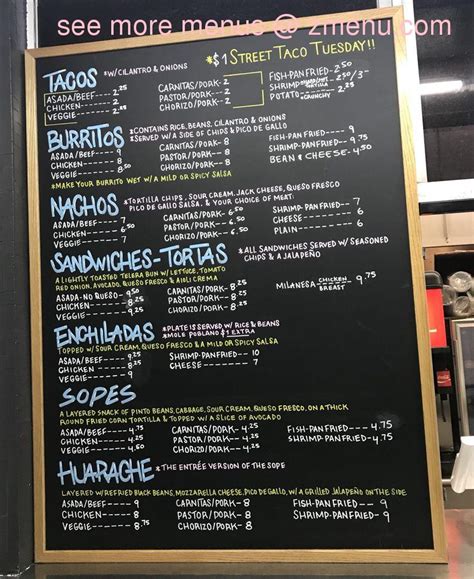 see more menus @ zmenu.com
*$1 STREET TACO TUESDAY!!
TACOS *W/CILANTRO & ONIONS
ASADA/BEEF----2.25 CARNITAS/PORK-2 FISH-PAN FRIED-2.50
CHICKEN------2 PASTOR/PORK--2 SHRIMP
VEGGIE-------2 CHORIZO/PORK-2 POTATO CRUNCHY 2
BURRITOS *CONTAINS RICE, BEANS, CILANTRO & ONIONS
*SERVED W/A SIDE OF CHIPS & PICO DE GALLO
ASADA/BEEF----9 CARNITAS/PORK-8 FISH-PAN FRIED----9
CHICKEN------8 PASTOR/PORK--8 SHRIMP-PANFRIED-9.50
VEGGIE--8.50 CHORIZO/PORK-8 BEAN & CHEESE-4.50
*MAKE YOUR BURRITO WET W/A MILD OR SPICY SALSA
NACHOS *TORTILLA CHIPS, SOUR CREAM, JACK CHEESE, QUESO FRESCO
PICO DE GALLO SALSA, & YOUR CHOICE OF MEAT:
ASADA/BEEF---7 CARNITAS/PORK-6.50 SHRIMP-PAN FRIED-7
CHICKEN-----6.50 PASTOR/PORK--6.50 CHEESE--------6
VEGGIE------7 CHORIZO/PORK-6.50 PLAIN--------6
SANDWICHES-TORTAS *ALL SANDWICHES SERVED W/ SEASONED
CHIPS & A JALAPEÑO
A LIGHTLY TOASTED TELERA BUN W/LETTUCE, TOMATO
RED ONION, AVOCADO, QUESO FRESCO & AIOLI CREMA
ASADA-NO QUESO--9.50 CARNITAS/PORK-8.25 MILANESA-CHICKEN BREAST-9.75
CHICKEN------8.25 PASTOR/PORK--8.25
VEGGIE------8.50 CHORIZO/PORK-8.25
ENCHILADAS *PLATE IS SERVED W/ RICE & BEANS
*MOLE POBLANO $1 EXTRA
TOPPED W/SOUR CREAM, QUESO FRESCO & A MILD OR SPICY SALSA
ASADA/BEEF---9.25 SHRIMP-PANFRIED--10
CHICKEN----- CHEESE-------7
VEGGIE-----
SOPES
A LAYERED SNACK OF PINTO BEANS, CABBAGE, SOUR CREAM, QUESO FRESCO, ON A THICK
ROUND FRIED CORN TORTILLA & TOPPED W/A SLICE OF AVOCADO
ASADA/BEEF----4.75 CARNITAS/PORK-4.25 FISH-PAN FRIED----4.75
CHICKEN------4.25 PASTOR/PORK--4.25 SHRIMP-PANFRIED-4.75
VEGGIE------4.50 CHORIZO/PORK-4.25
HUARACHE *THE ENTRÉE VERSION OF THE SOPE
LAYERED W/REFRIED BLACK BEANS, MOZZARELLA CHEESE, PICO DE GALLO, W/A GRILLED JALAPEÑO ON THE SIDE
ASADA/BEEF----9 CARNITAS/PORK-8 FISH-PAN FRIED-9
CHICKEN------8 PASTOR/PORK--8 SHRIMP-PAN FRIED-9
VEGGIE------8.75 CHORIZO/PORK-8